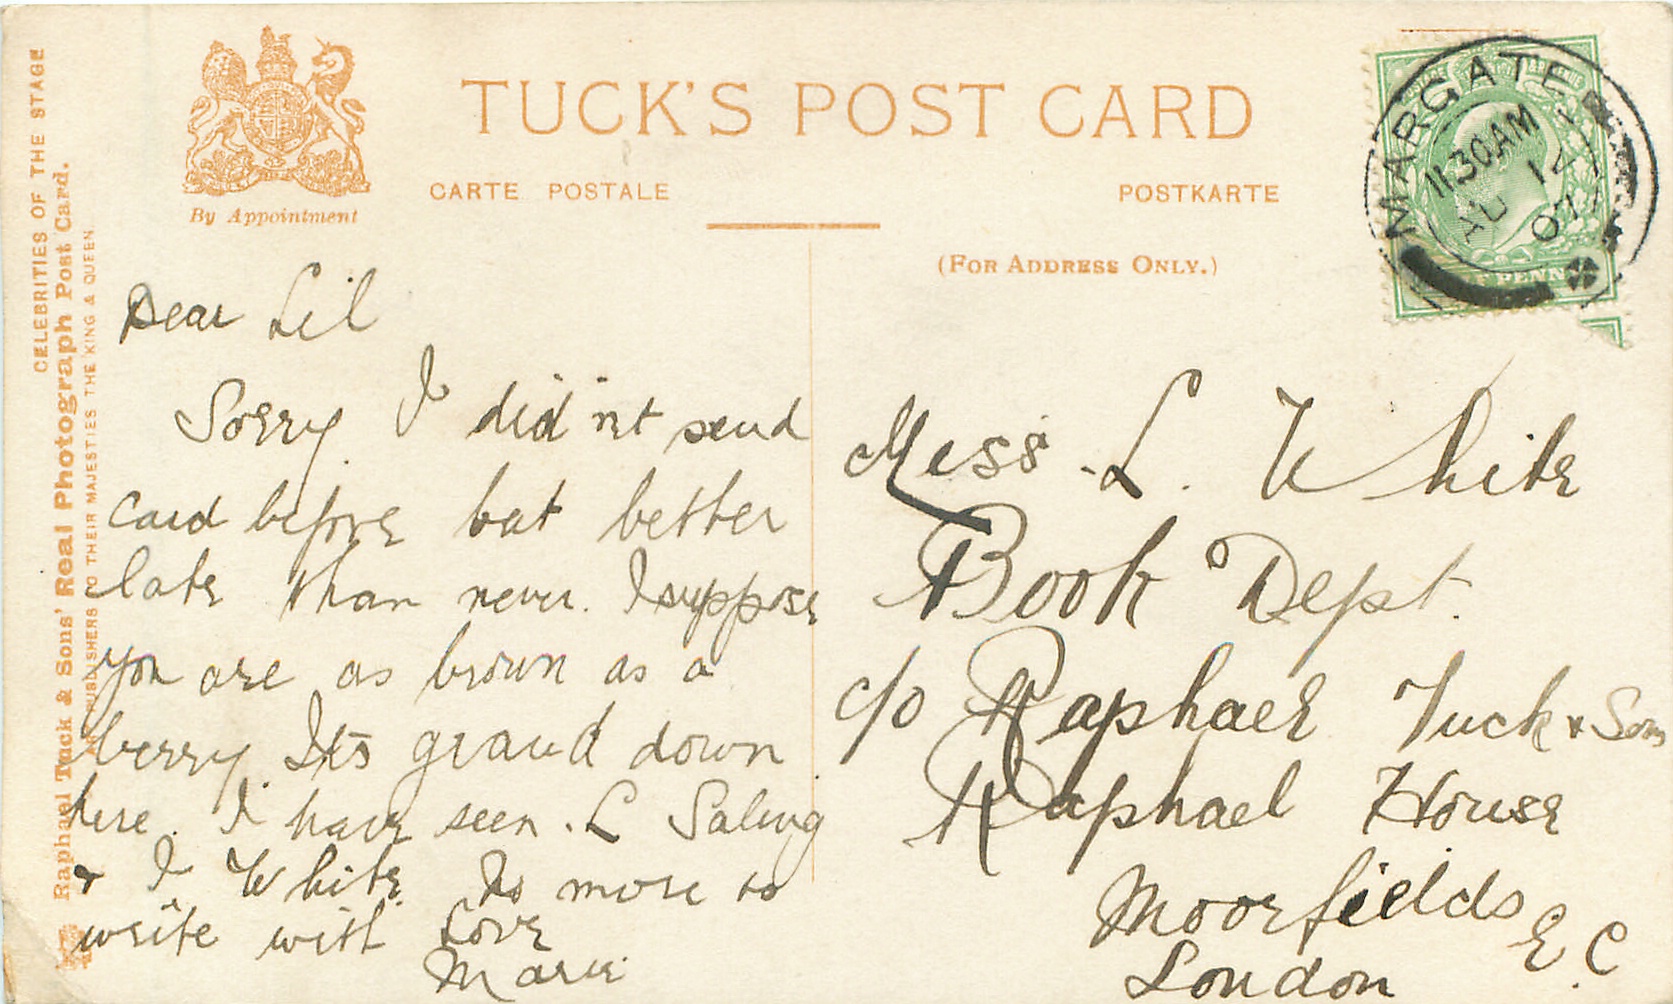 CELEBRITIES OF THE STAGE
Raphael Tuck & Sons' Real Photograph Post Card.
ART PUBLISHERS TO THEIR MAJESTIES THE KING & QUEEN
By Appointment
TUCK'S POST CARD
CARTE POSTALE
POSTKARTE
(FOR ADDRESS ONLY.)
MARGATE
11.30 AM
AU 17
07
PENN
Dear Lil
Sorry I did'nt send
card before but better
late than never. I suppose
you are as brown as a
berry. Its grand down
here. I have seen. L Saling
& I White. No more to
write with Love
Marie
Miss L. White
Book Dept.
c/o Raphael Tuck & Sons
Raphael House
Moorfields
E.C
London